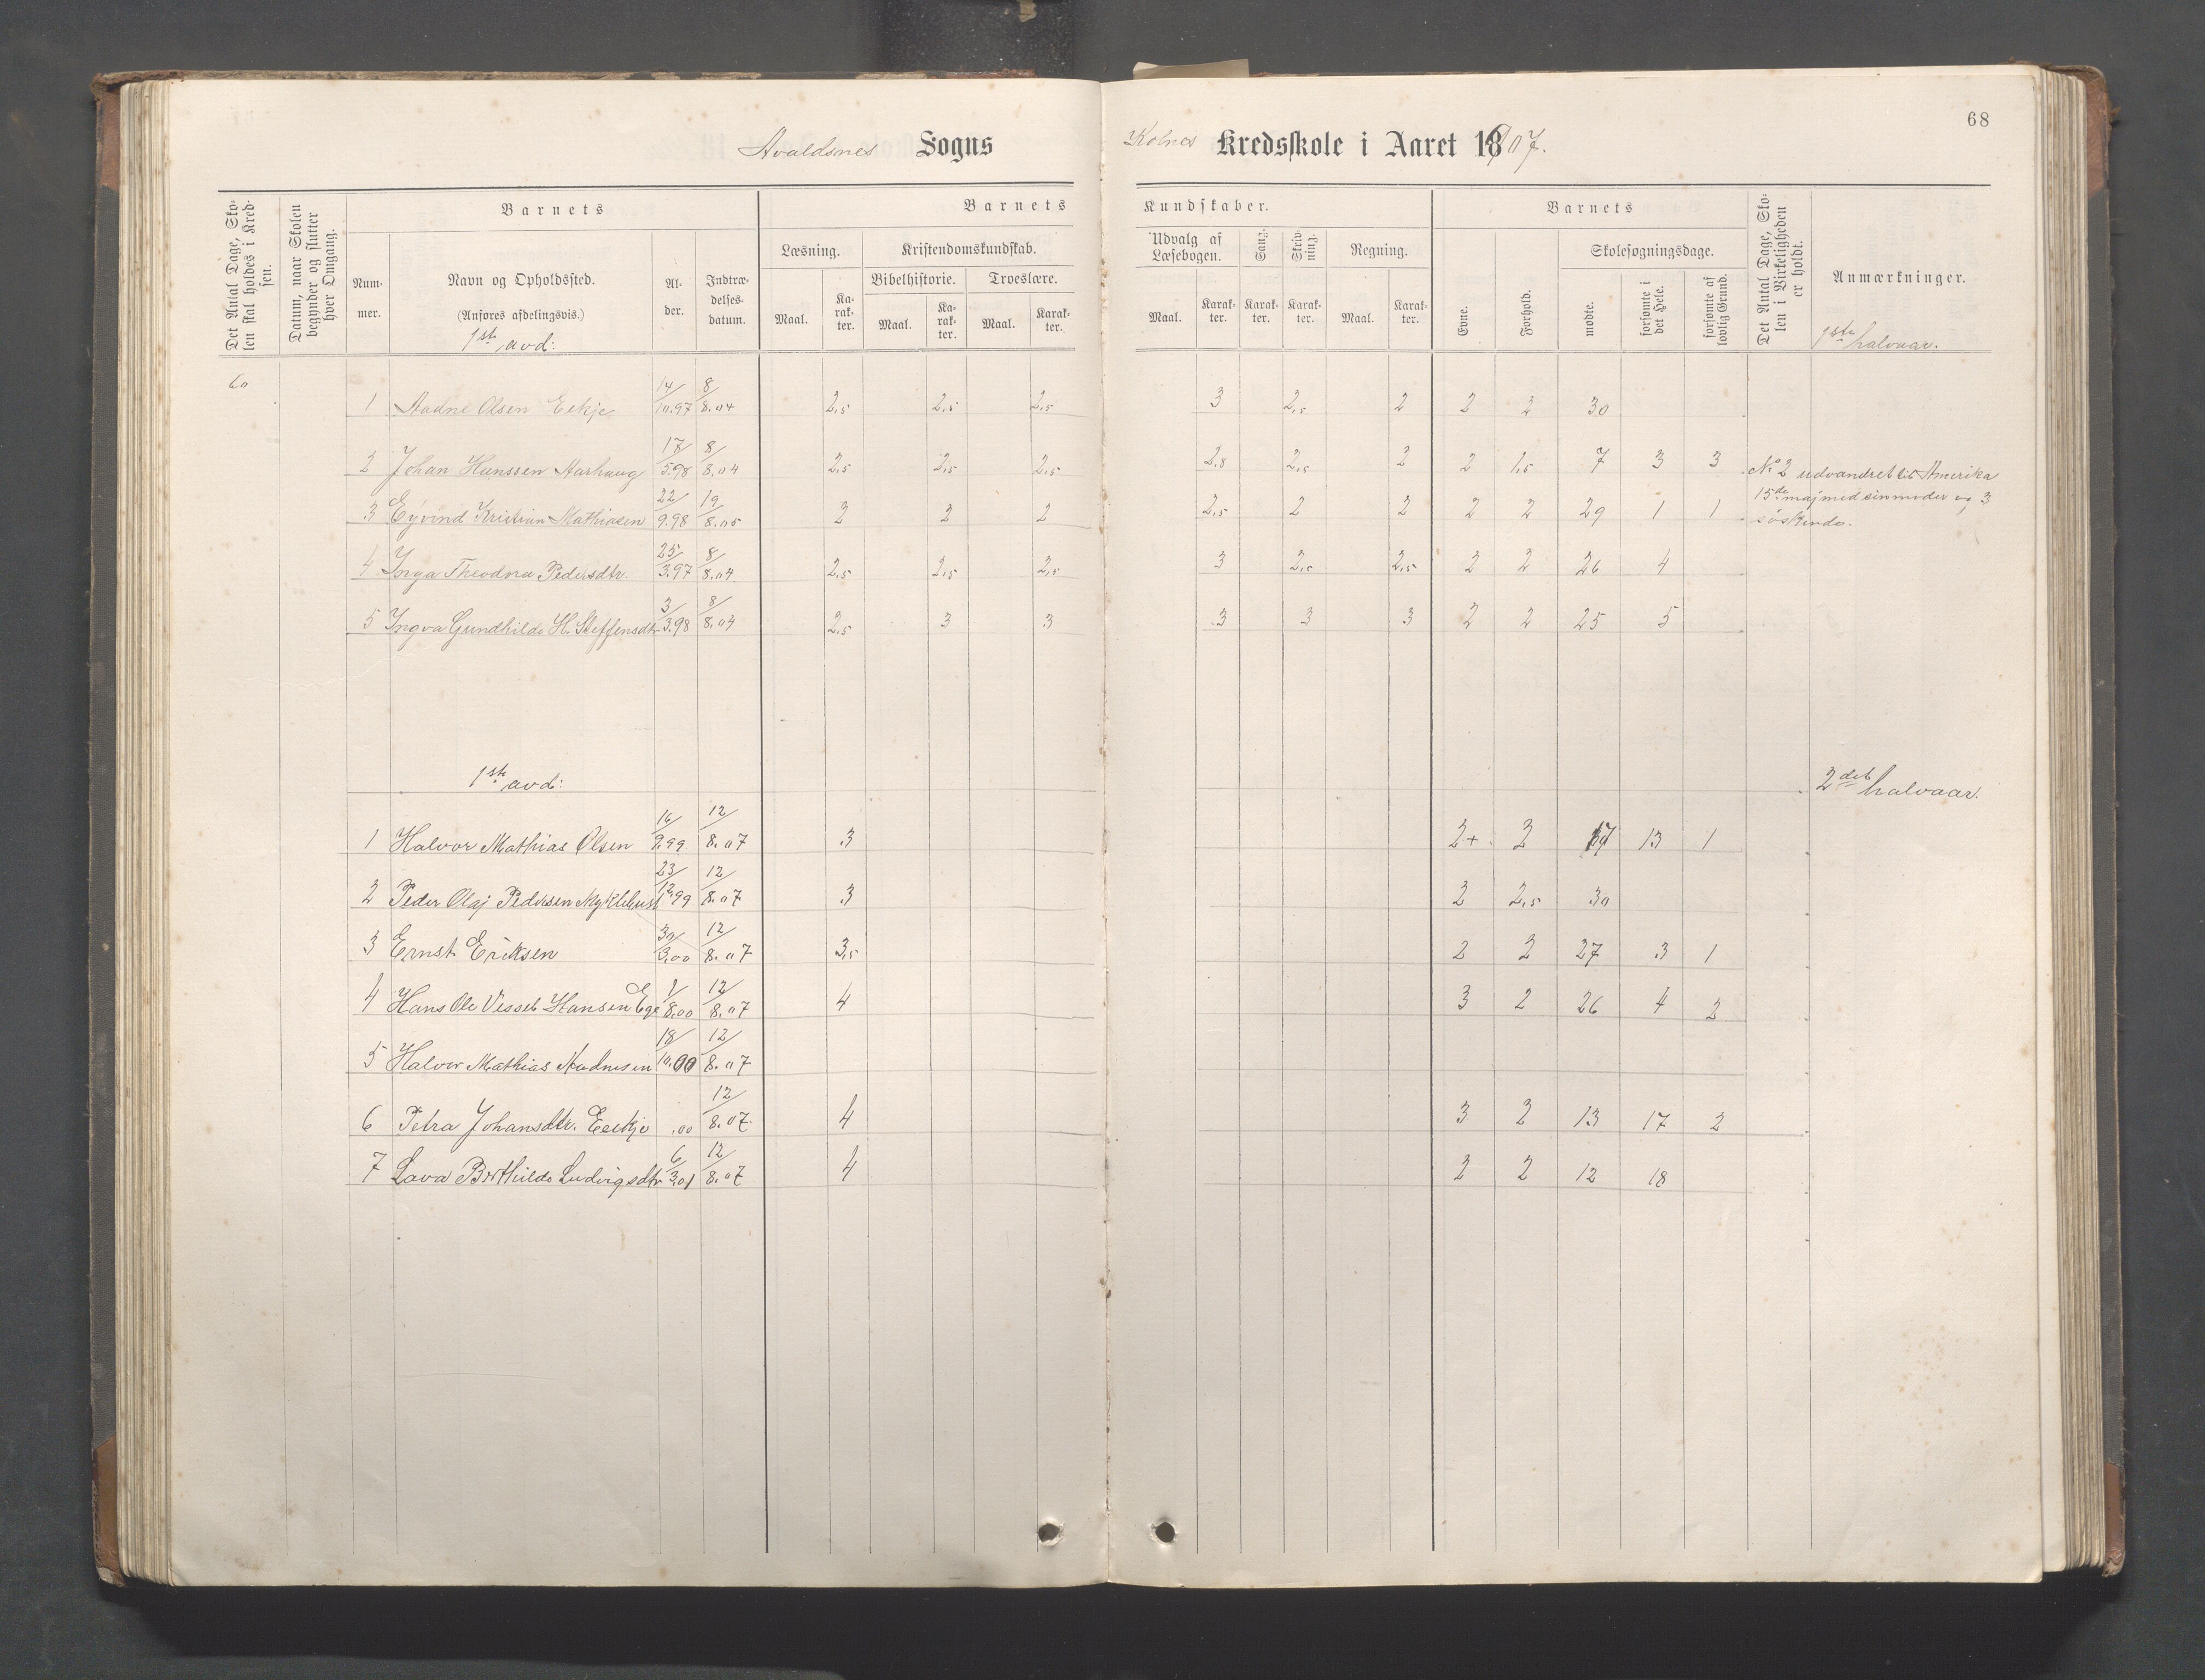 68
Avaldsnes Sogns Kolnes Kredsskole i Aaret 1907.
Det Antal Dage, Sko-
len skal holdes i Kred-
sen.
Datum, naar Skolen
begynder og slutter
hver Omgang.
Barnets
Num-
mer.
Navn og Opholdssted.
(Anføres afdelingsvis.)
1ste avd:
Al-
der.
Indtræ-
delses-
datum.
Barnets
Læsning.
Maal.
Ka-
rak-
ter.
Kristendomskundskab.
Bibelhistorie.
Maal.
Ka-
rak-
ter.
Troeslære.
Maal.
Karak-
ter.
Kundskaber.
Udvalg af
Læsebogen.
Maal.
Karak-
ter.
Sang.
Karak-
ter.
Skriv-
ning.
Karak-
ter.
Regning.
Maal.
Karak-
ter.
Barnets
Evne.
Forhold.
Skolesøgningsdage.
mødte.
forsømte i
det Hele.
forsømte af
lovlig Grund.
Det Antal Dage, Sko-
len i Virkeligheden
er holdt.
Anmærkninger.
1ste halvaar.
60
1 Aadne Olsen Eekje 14/10.97 8/8.04 2,5 2,5 2,5 3 2,5 2 2 2 30
2 Johan Hanssen Aarhaug 17/5.98 8/8.04 2,5 2,5 2,5 2,8 2,5 2 2 1,5 7 3 3
No 2 udvandret til Amerika
15de maj med sin moder og 3
søskende.
3 Eyvind Kristian Mathiasen 22/9.98 19/8.05 2 2 2 2,5 2 2 2 2 29 1 1
4 Inga Theodora Pedersdtr. 25/3.97 8/8.04 2,5 2,5 2,5 3 2,5 2,5 2 2 26 4
5 Ingva Gundhilde H. Steffensdtr 3/3.98 8/8.04 2,5 3 3 3 3 3 2 2 25 5
1ste avd:
2det halvaar.
1 Halvor Mathias Olsen 16/9.99 12/8.07 3 2+ 2 17 13 1
2 Peder Olaj Pedersen Myklebust 23/12.99 12/8.07 3 2 2,5 30
3 Ernst Eriksen 30/3.00 12/8.07 3,5 2 2 27 3 1
4 Hans Ole Vesseb Hansen Ege 1/8.00 12/8.07 4 3 2 26 4 2
5 Halvor Mathias Aadnesen 18/10.00 12/8.07
6 Petra Johansdtr. Eeekje .00 12/8.07 4 3 2 13 17 2
7 Lava Berthilde Ludvigsdtr 6/3.01 12/8.07 4 2 2 12 18